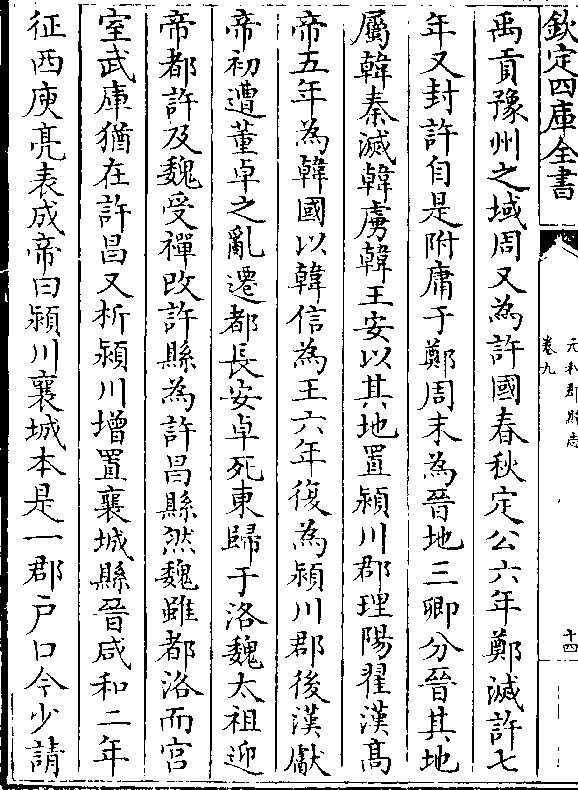 欽定四庫全書
元和郡縣志
卷九
十四
禹貢豫州之域周又為許國春秋定公六年鄭滅許七
年又封許自是附庸于鄭周末為晉地三卿分晉其地
屬韓秦滅韓虜韓王安以其地置潁川郡理陽翟漢髙
帝五年為韓國以韓信為王六年復為潁川郡後漢獻
帝初遭董卓之亂遷都長安卓死東歸于洛魏太祖迎
帝都許及魏受禪改許縣為許昌縣然魏雖都洛而宫
室武庫猶在許昌又析潁川增置襄城縣晉咸和二年
征西庾亮表成帝曰潁川襄城本是一郡户口今少請